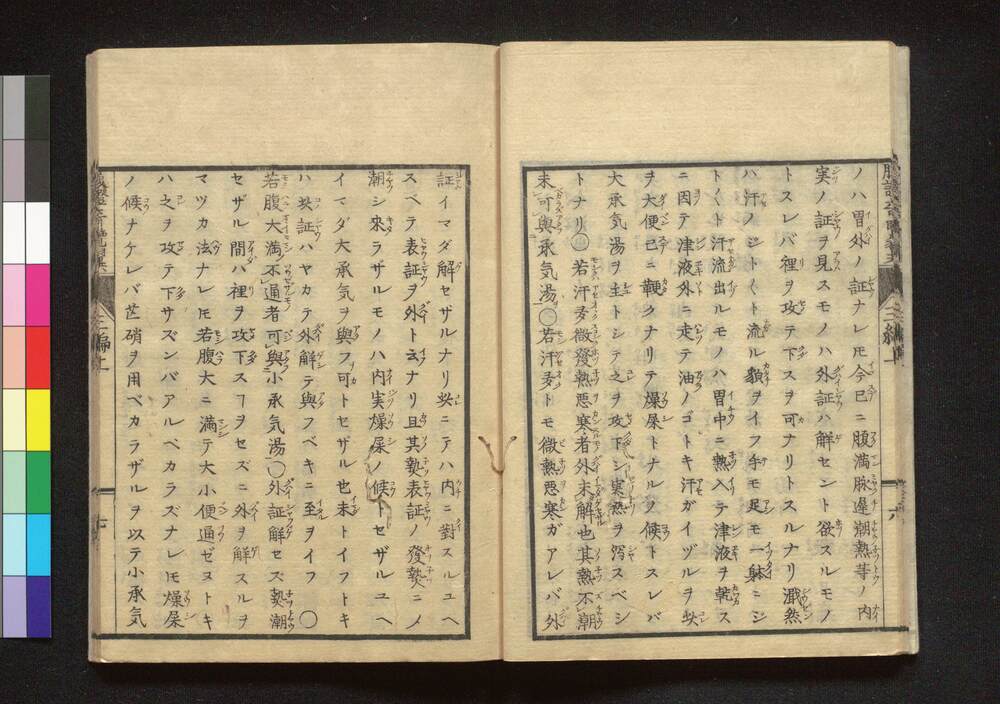 ノハ胃外ノ証ナレㇳモ今已ニ腹満脹遶潮熱等ノ内
実ノ証ヲ見スモノハ外証ハ解セント欲スルモノ
トスレバ裡ヲ攻テ下スヲ可ナリトスルナリ濈然
バ汗ノシト〱ト流ル貌ヲイフ手モ足モ一躰ニシ
ト〱ト汗流出ルモノハ胃中ニ熱入テ津液ヲ乾ス
ニ因テ津液外ニ走テ油ノゴトキ汗ガイヅルヲ以
ヲ大便已ニ鞕クナリテ燥屎トナルノ候トスレバ
大承気湯ヲ主トシテ之ヲ攻下シ実熱ヲ瀉スベシ
トナリ〇若汗多微發熱悪寒者外未解也其熱不潮
未可與承気湯〇若汗多トモ微熱悪寒ガアレバ外
証イマダ解セザルナリ此ニテハ内ニ對スルユヘ
スベテ表証ヲ外ト云ナリ且其熱表証ノ發熱ニメ
潮シ来ラザルモノハ内実燥屎ノ候トセザルユヘ
イマダ大承気ヲ與フ可カトセザル也未トイフトキ
ハ此証ハヤカテ外解テ與フベキニ至ヲイフ〇
若腹大満不通者可與小承気湯〇外証解セズ熱潮
セザル間ハ裡ヲ攻下スヿヲセズニ外ヲ解スルヲ
マツカ法ナレㇳモ若腹大ニ満テ大小便通ゼヌトキ
ハ之ヲ攻下サズンバアルベカラズナレㇳモ燥屎
ノ候ナケレバ芒硝ヲ用ベカラザルヲ以テ小承気